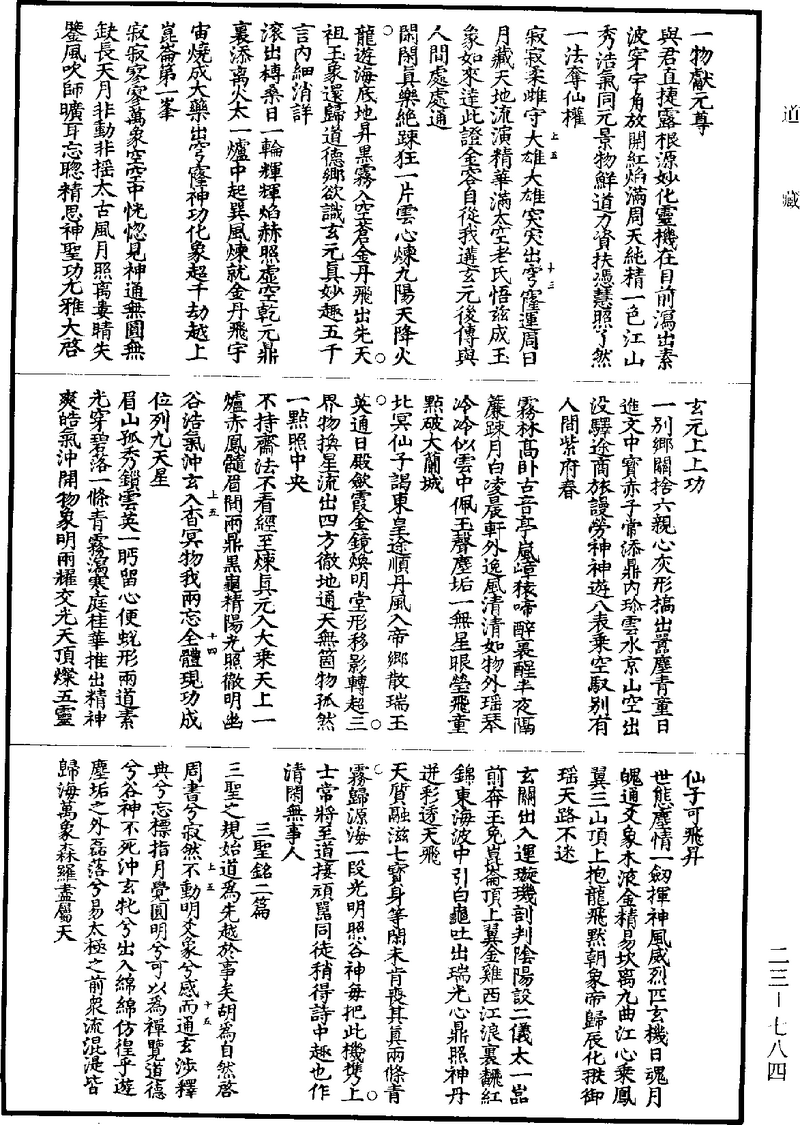 道藏
一物獻元尊
與君直捷露根源妙化靈機在目前瀉出素
波穿宇角放開紅焰滿周天純精一色江山
秀浩氣同元景物鮮道方資扶憑慧照了然
一法奪仙權
寂寂柔雌守大雄大雄突突出穹窿運周日
上五
十三
月藏天地流演精華滿太空老氏悟兹成玉
象如來達此證金容自從我遘玄元後傳與
人間處處通
閑閑真樂絶踈狂一片雲心煉九陽天降火
龍遊海底地昇黑霧入空蒼金丹飛出先天
祖玉象還歸道德鄉欲識玄元真妙趣五千
言内細消詳
滚出榑桑日一輪輝輝焰赫照虚空乾元鼎
裏添离火太一爐中起巽風煉就金丹飛宇
宙燒成大藥出穹窿神功化象超千劫越上
崑崙第一峯
寂寂寥寥萬象空空中恍惚見神通無圓無
缺長天月非動非摇太古風月照離婁睛失
鑒風吹師曠耳忘聰精思神聖功尤雅大啓
玄元上上功
一别鄉關捨六親心灰形槁出嚣塵青童日
進文中寶赤子常添鼎内珎雲水京山空出
没驛途商旅謾勞神神遊八表乘空馭别有
人間紫府春
霧林高卧古音亭嵐嶂猿啼醉裏醒半夜隔
簾踈月白凌晨軒外逸風清清如物外瑶琴
冷冷似雲中佩玉聲塵垢一無星眼瑩飛童
點破大蘭城
北冥仙子謁東皇途順丹風入帝鄉散瑞玉
英通日殿歛霞金鏡焕明堂形移影轉超三
界物换星流出四方徹地通天無箇物孤然
一點照中央
不持齋法不看經至煉真元入大乗天上一
爐赤鳳髓眉間兩鼎黑龜精陽光照徹明幽
十四
谷浩氣沖玄入杳冥物我兩忘全體現功成
上五
位列九天星
眉山孤秀鎖雲英一眄留心便蜕形兩道素
光穿碧落一條青霧瀉寒庭桂華推出精神
爽皓氣沖開物象明兩耀交光天頂燦五靈
仙子可飛昇
世態塵情一劒揮神風威烈匹玄機日魂月
魄通爻象木液金精易坎离九曲江心乗鳳
翼三山頂上抱龍飛㸃朝象帝歸辰化駛御
瑶天路不迷
玄關出入運璇璣剖判陰陽設二儀太一嵓
前奔玉兔崑崙頂上翼金雞西江浪裏飜紅
錦東海波中引白龜吐出瑞光心鼎照神丹
迸彩透天飛
天質融滋七寶身等閑未肯喪其真兩條青
霧歸源海一段光明照谷神每把此機携上
士常將至道接頑嚚同徒稍得詩中趣也作
清閑無事人
三聖銘二篇
三聖之規始道爲先越於事矣胡爲自然啓
周書兮寂然不動明爻象兮感而通玄涉釋
上五
十五
典兮忘標指月覺圓明兮可以爲禪覽道德
兮谷神不死沖玄牝兮出入綿綿仿徨乎遊
塵垢之外磊落兮易太極之前衆流混湜皆
歸海萬象森羅盡屬天
二三—七八四